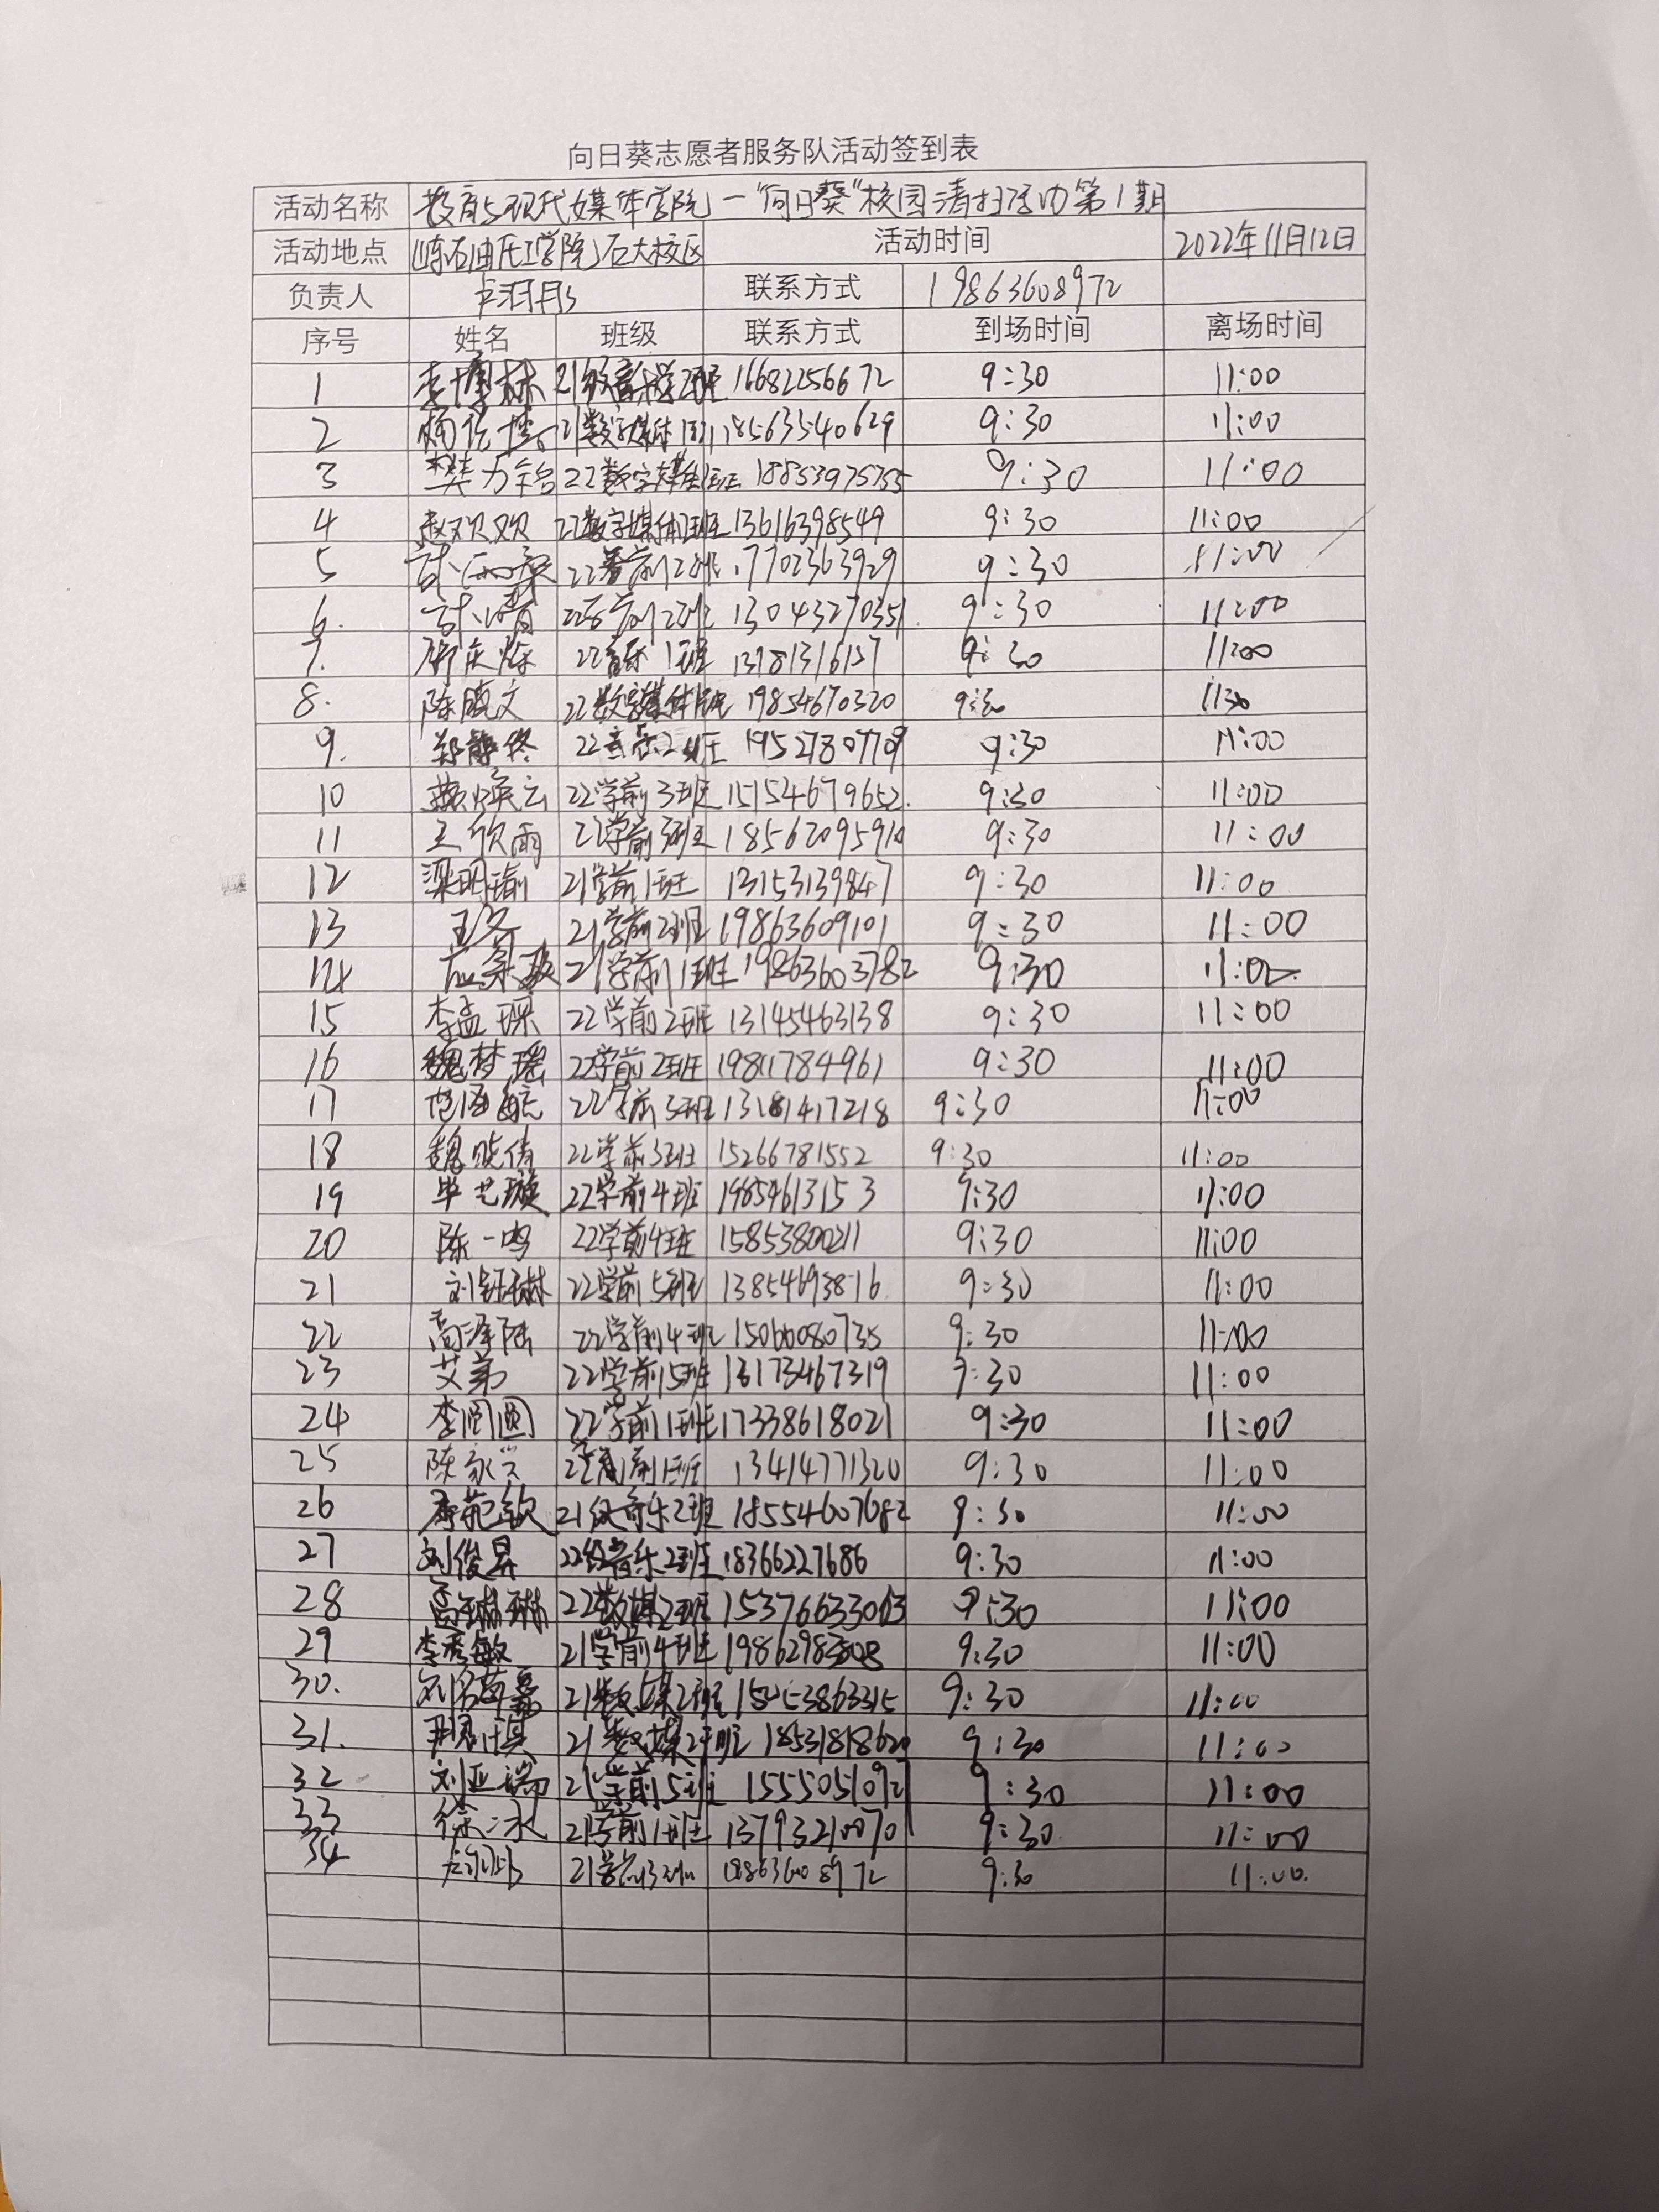 向日葵志愿者服务队活动签到表
活动名称 教育与现代媒体学院—"向日葵"校园清扫活动第1期
活动地点 石油化工学院)石大校区 活动时间 2022年11月12日
负责人 联系方式 19863608972
序号 姓名 班级 联系方式 到场时间 离场时间
1 李博林 21级音乐学2班 16682256672 9:30 11:00
2 21数字媒体1班 18563540629 9:30 11:00
3 樊力铭 22数字媒体1班 18853975755 9:30 11:00
4 赵欢欢 22数字媒体2班 13616398549 9:30 11:00
5 22学前2班 17702363929 9:30 11:00
6. 22学前2班 13043270351 9:30 11:00
7. 22音乐1班 9:30 11:00
8. 陈晓文 22数字媒体 19854670320 9:30
9. 郑静佟 22音乐2班 19527807709 9:30 11:00
10 燕焕云 22学前3班 15154679652 9:30 11:00
11 王欣雨 22学前3班 18562095910 9:30 11:00
12 梁明瑜 21学前1班 13153139847 9:30 11:00
13 21学前2班 19863609101 9:30 11:00
14 21学前1班 19863603782 9:30 11:00
15 李孟琛 22学前2班 13145463138 9:30 11:00
16 魏梦瑶 22学前2班 19811784961 9:30 11:00
17 22学前3班 13181417218 9:30 11:00
18 魏晓倩 22学前3班 15266781552 9:30 11:00
19 毕艺璇 22学前4班 19854613153 9:30 11:00
20 陈一鸣 22学前4班 15853800211 9:30 11:00
21 刘钰琳 22学前5班 13854693816 9:30 11:00
22 高泽陆 22学前4班 15066080735 9:30 11:00
23 艾弟 22学前5班 13173467319 9:30 11:00
24 李圆圆 22学前1班 17338618021 9:30 11:00
25 陈家兴 22学前1班 13414771320 9:30 11:00
26 21级音乐2班 18554607682 9:30 11:00
27 刘俊昇 22级音乐2班 18366227686 9:30 11:00
28 孟琳琳 22数媒2班 9:30 11:00
29 李彦敏 21学前4班 19862983508 9:30 11:00
30. 21数媒2班 15053863315 9:30 11:00
31. 邢君琪 21数媒2班 18531818620 9:30 11:00
32 刘亚瑞 21学前5班 15550510921 9:30 11:00
33 徐冰 21学前1班 13793210070 9:30 11:00
34 21学前3班 19863608972 9:30 11:00.